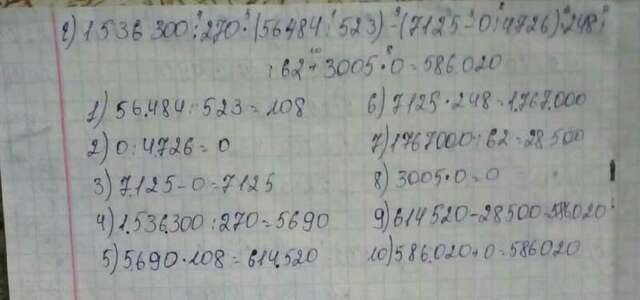 2) 1.536 300 : 270 · (56484 : 523) - (7125 - 0 : 4726) · 248 :
: 62 + 3005 · 0 = 586.020
1) 56.484 : 523 = 108
2) 0 : 4.726 = 0
3) 7.125 - 0 = 7125
4) 1.536.300 : 270 = 5690
5) 5.690 · 108 = 614.520
6) 7125 · 248 = 1.767.000
7) 1767000 : 62 = 28 500
8) 3005 · 0 = 0
9) 614 520 - 28500 = 586.020
10) 586.020 + 0 = 586020